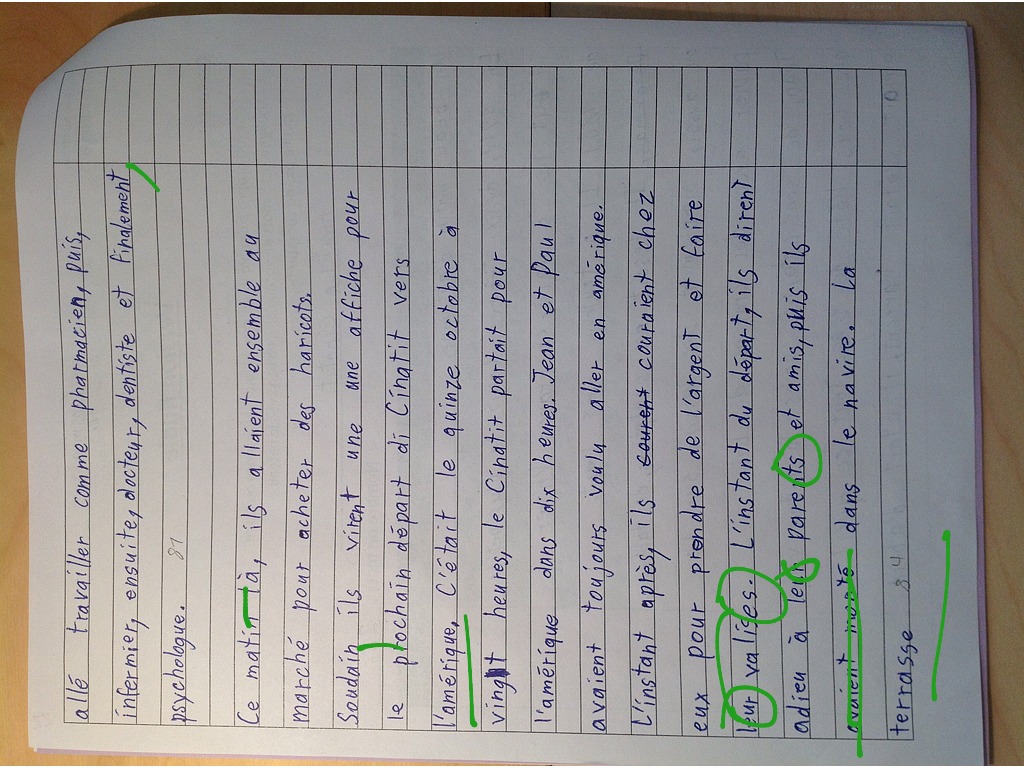 allé travailler comme pharmacien, puis,
infermier, ensuite, docteur, dentiste et finalement,
psychologue. 81
Ce matin-là, ils allaient ensemble au
marché pour acheter des haricots.
Soudain ils virent une une affiche pour
le prochain départ di Cinatit vers
l'amérique, C'était le quinze octobre à
vingt heures, le Cinatit partait pour
l'amérique dans dix heures. Jean et Paul
avaient toujours voulu aller en amérique.
L'instant après, ils courent couraient chez
eux pour prendre de l'argent et faire
leur valises. L'instant du départ, ils dirent
adieu à leur parents et amis, puis ils
avaient monté dans le navire. La
terrasse 84